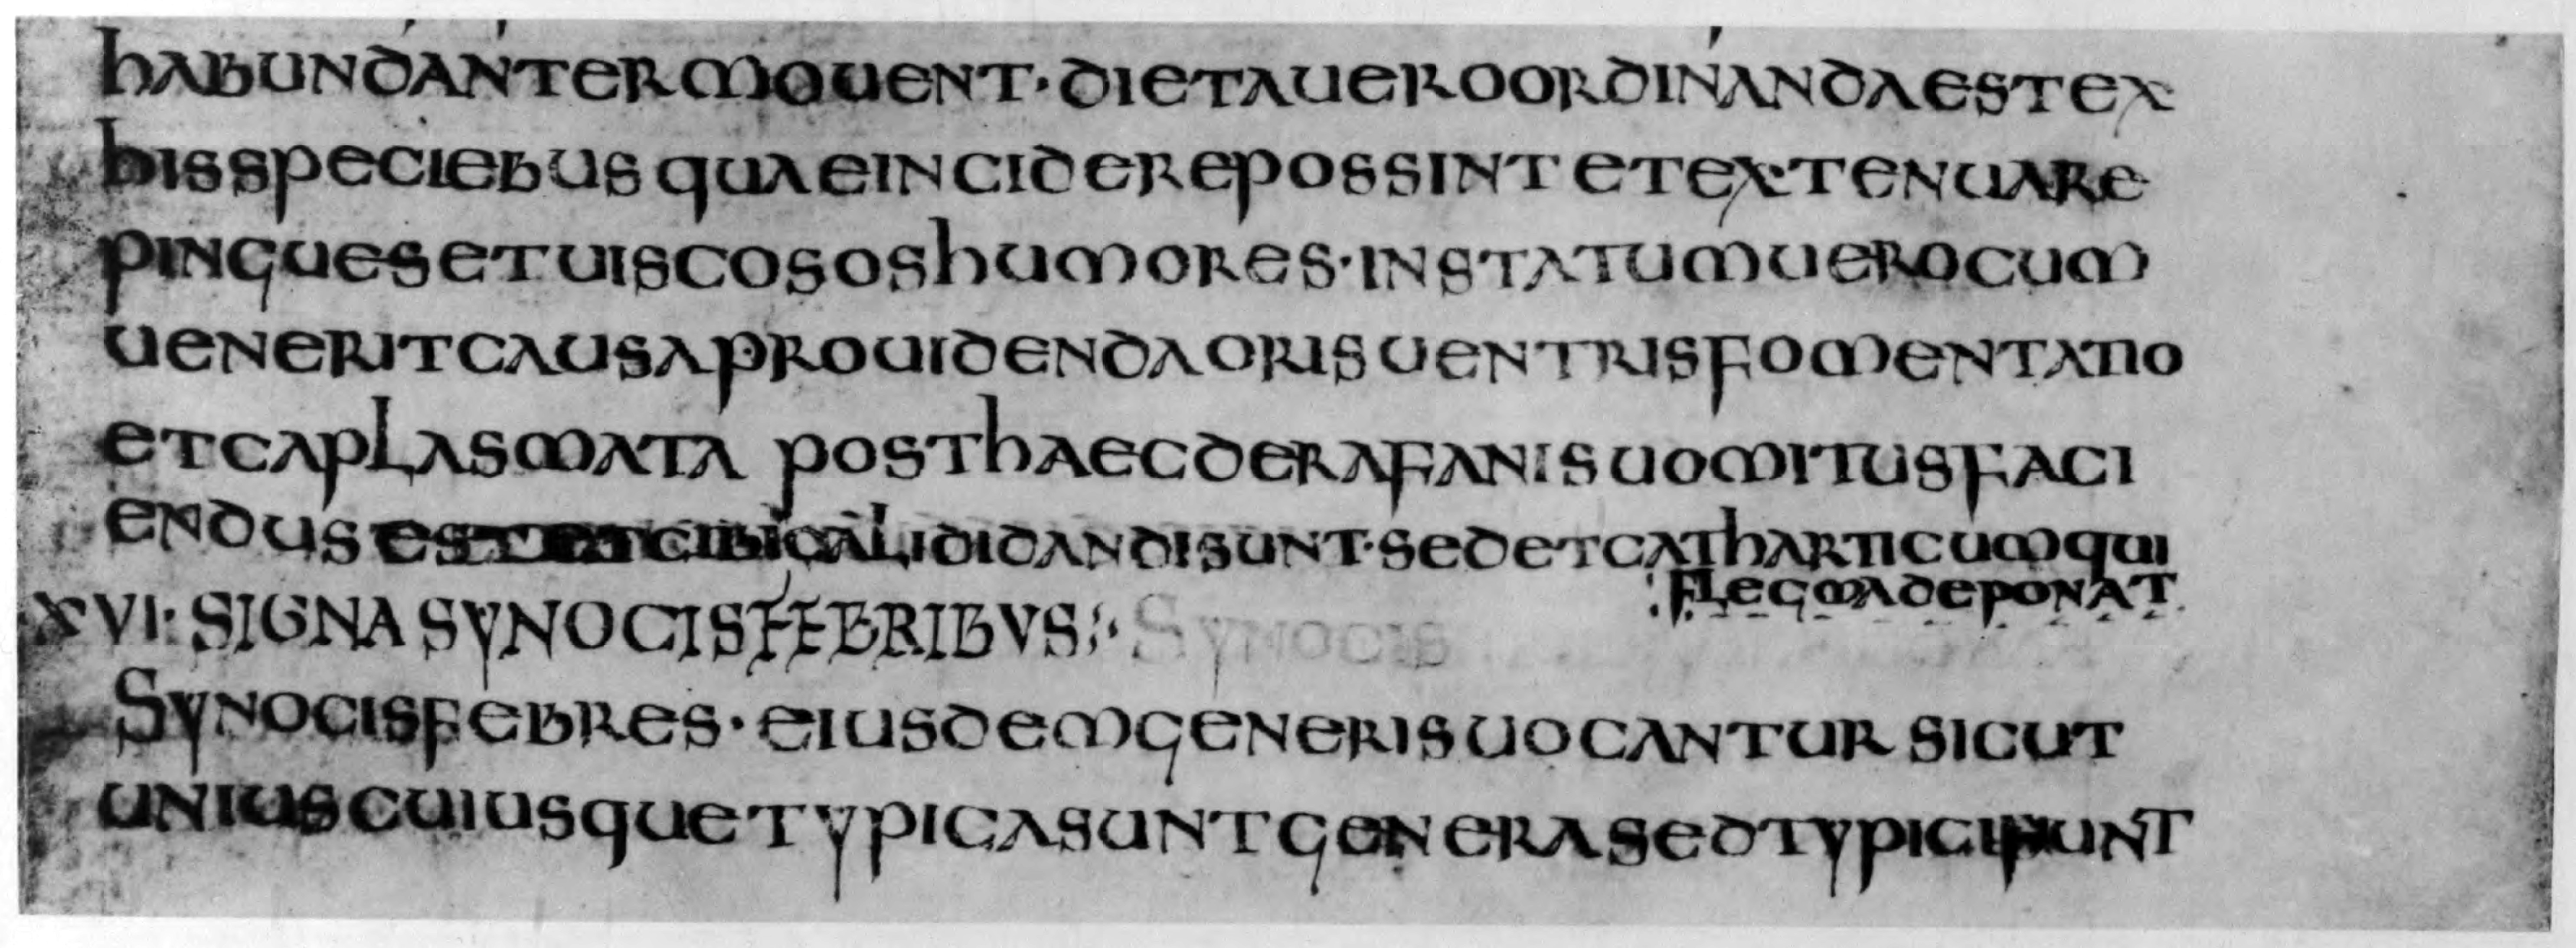 habundanter mouent · dieta uero ordinanda est ex
his speciebus quae incidere possint et extenuare
pingues et uiscosos humores · in statum uero cum
uenerit causa prouidenda oris uentris fomentatio
et caplasmata post haec de rafanis uomitus faci
endus est et cibi calidi dandi sunt · sed et catharticum qui
flegma deponat
XVI · SIGNA SYNOCIS FEBRIBVS Synocis
Synocis febres · eiusdem generis uocantur sicut
unius cuiusque typica sunt genera sed typici